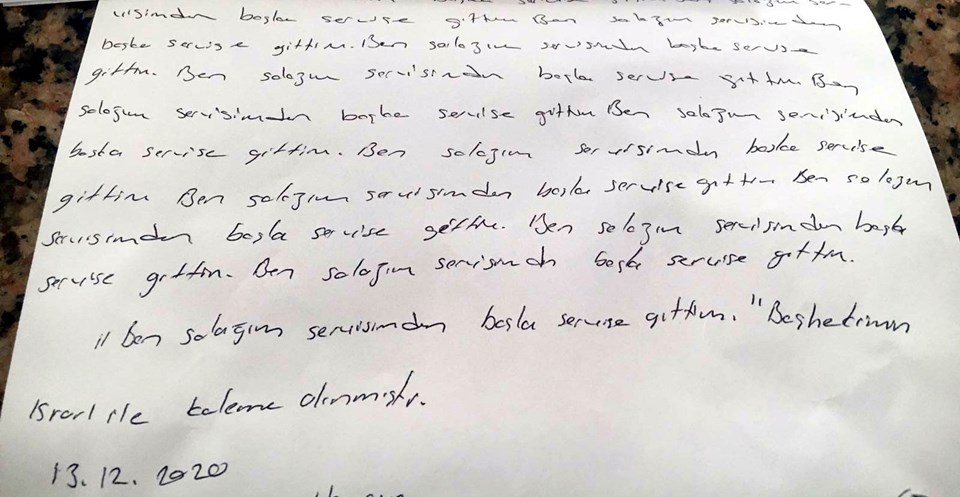 visimden başka servise gittim Ben salağım servisimden
başka servise gittim. Ben salağım servisimden başka servise
gittim. Ben salağım servisimden başka servise gittim Ben
salağım servisimden başka servise gittim Ben salağım servisimden
başka servise gittim. Ben salağım servisimden başka servise
gittim Ben salağım servisimden başka servise gittim Ben salağım
servisimden başka servise gittim. Ben salağım servisimden başka
servise gittim. Ben salağım servisimden başka servise gittim.
"Ben salağım servisimden başka servise gittim." Başhekimin
Israrı ile kaleme alınmıştır.
13.12.2020